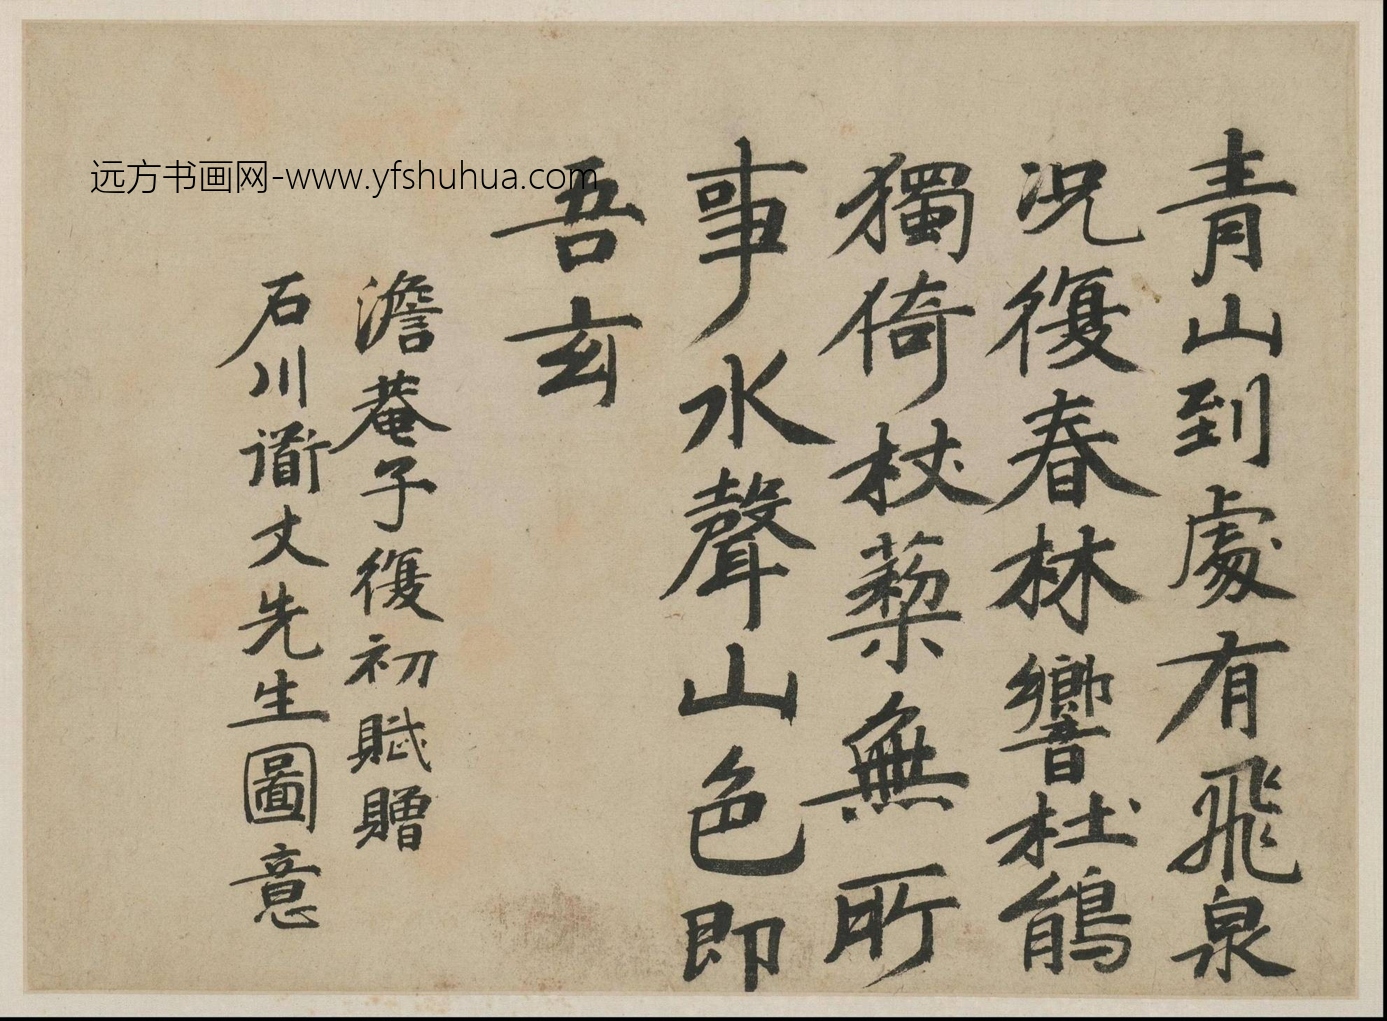 青山到處有飛泉
况復春林響杜鵑
獨倚杖藜無所
事水聲山色即
吾玄
澹菴子復初賦贈
石川道丈先生圖意
远方书画网-www.yfshuhua.com